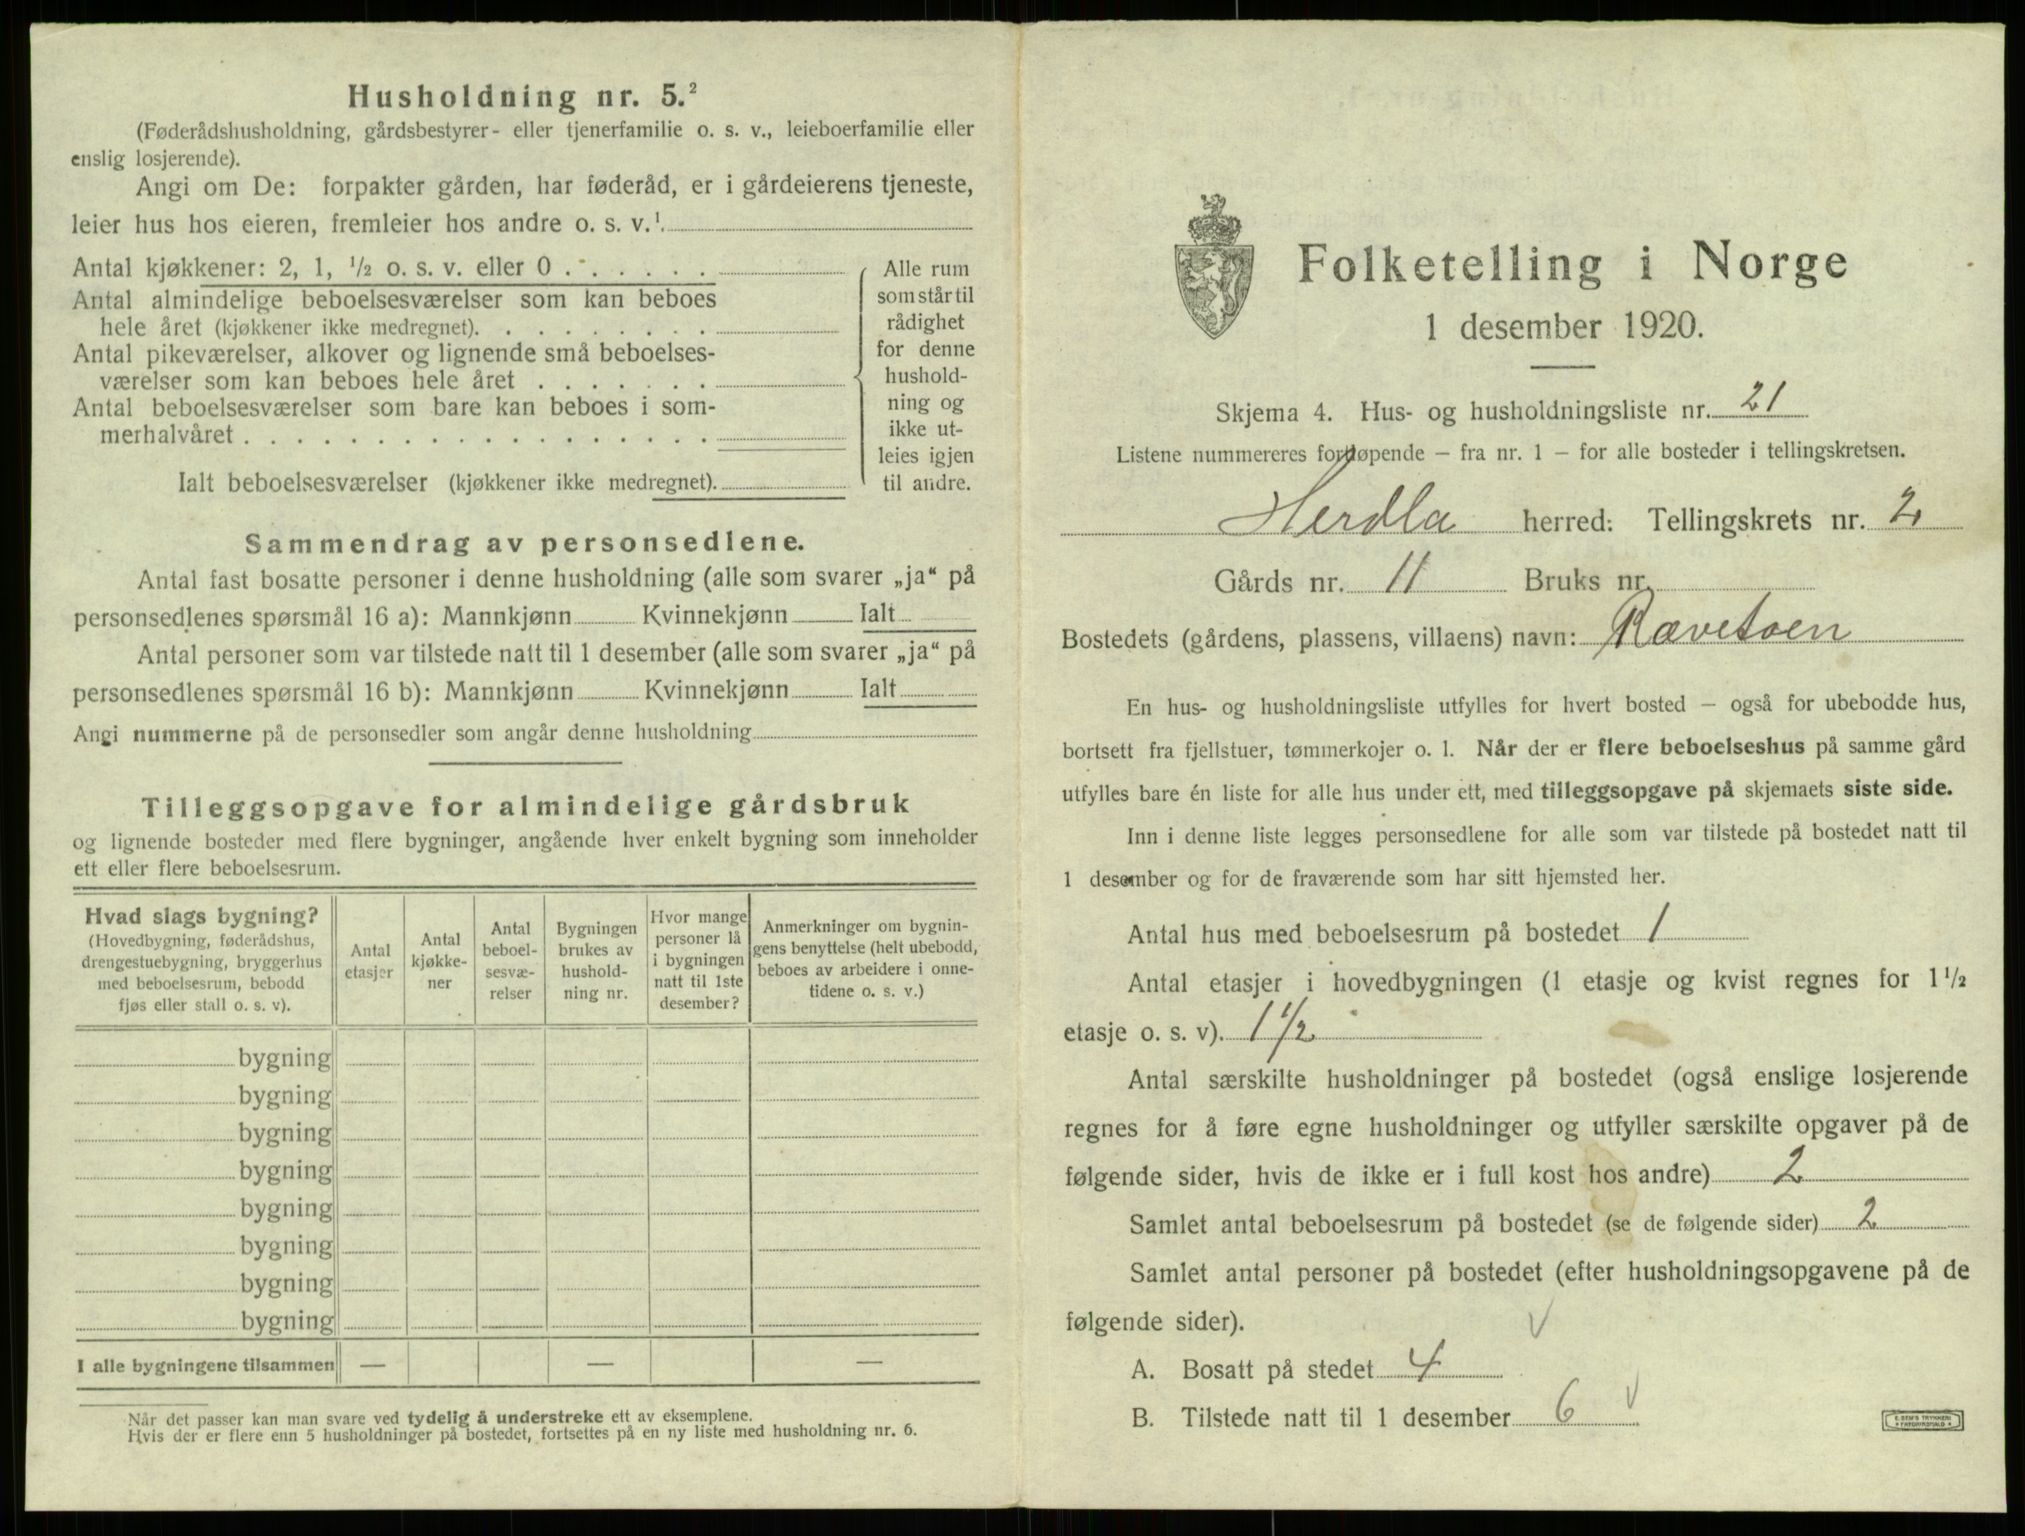 Husholdning nr. 5.²
(Føderådshusholdning, gårdsbestyrer- eller tjenerfamilie o. s. v., leieboerfamilie eller
enslig losjerende).
Angi om De: forpakter gården, har føderåd, er i gårdeierens tjeneste,
leier hus hos eieren, fremleier hos andre o. s. v.¹
Antal kjøkkener: 2, 1, ½ o. s. v. eller 0 . . . . . .
Antal almindelige beboelsesværelser som kan beboes
hele året (kjøkkener ikke medregnet). . . . . . . . .
Antal pikeværelser, alkover og lignende små beboelses-
værelser som kan beboes hele året . . . . . . .
Antal beboelsesværelser som bare kan beboes i som-
merhalvåret . . . . . . . . . . . . . . . . . .
Ialt beboelsesværelser (kjøkkener ikke medregnet).
Alle rum
som står til
rådighet
for denne
hushold-
ning og
ikke ut-
leies igjen
til andre.
Sammendrag av personsedlene.
Antal fast bosatte personer i denne husholdning (alle som svarer „ja“ på
personsedlenes spørsmål 16 a): Mannkjønn Kvinnekjønn Ialt
Antal personer som var tilstede natt til 1 desember (alle som svarer „ja“ på
personsedlenes spørsmål 16 b): Mannkjønn Kvinnekjønn Ialt
Angi nummerne på de personsedler som angår denne husholdning
Tilleggsopgave for almindelige gårdsbruk
og lignende bosteder med flere bygninger, angående hver enkelt bygning som inneholder
ett eller flere beboelsesrum.
Hvad slags bygning?
(Hovedbygning, føderådshus,
drengestuebygning, bryggerhus
med beboelsesrum, bebodd
fjøs eller stall o. s. v).
Antal
etasjer
Antal
kjøkke-
ner
Antal
beboel-
sesvæ-
relser
Bygningen
brukes av
hushold-
ning nr.
Hvor mange
personer lå
i bygningen
natt til 1ste
desember?
Anmerkninger om bygnin-
gens benyttelse (helt ubebodd,
beboes av arbeidere i onne-
tidene o. s. v.)
bygning
bygning
bygning
bygning
bygning
bygning
bygning
bygning
I alle bygningene tilsammen — — —
Når det passer kan man svare ved tydelig å understreke ett av eksemplene.
Hvis der er flere enn 5 husholdninger på bostedet, fortsettes på en ny liste med husholdning nr. 6.
Folketelling i Norge
1 desember 1920.
Skjema 4. Hus- og husholdningsliste nr. 21
Listene nummereres fortløpende – fra nr. 1 – for alle bosteder i tellingskretsen.
Herdla herred: Tellingskrets nr. 2
Gårds nr. 11 Bruks nr.
Bostedets (gårdens, plassens, villaens) navn: Rævetoen
En hus- og husholdningsliste utfylles for hvert bosted – også for ubebodde hus,
bortsett fra fjellstuer, tømmerkojer o. l. Når der er flere beboelseshus på samme gård
utfylles bare én liste for alle hus under ett, med tilleggsopgave på skjemaets siste side.
Inn i denne liste legges personsedlene for alle som var tilstede på bostedet natt til
1 desember og for de fraværende som har sitt hjemsted her.
Antal hus med beboelsesrum på bostedet 1
Antal etasjer i hovedbygningen (1 etasje og kvist regnes for 1½
etasje o. s. v). 1½
Antal særskilte husholdninger på bostedet (også enslige losjerende
regnes for å føre egne husholdninger og utfyller særskilte opgaver på de
følgende sider, hvis de ikke er i full kost hos andre) 2
Samlet antal beboelsesrum på bostedet (se de følgende sider) 2
Samlet antal personer på bostedet (efter husholdningsopgavene på de
følgende sider).
A. Bosatt på stedet 4
B. Tilstede natt til 1 desember 6